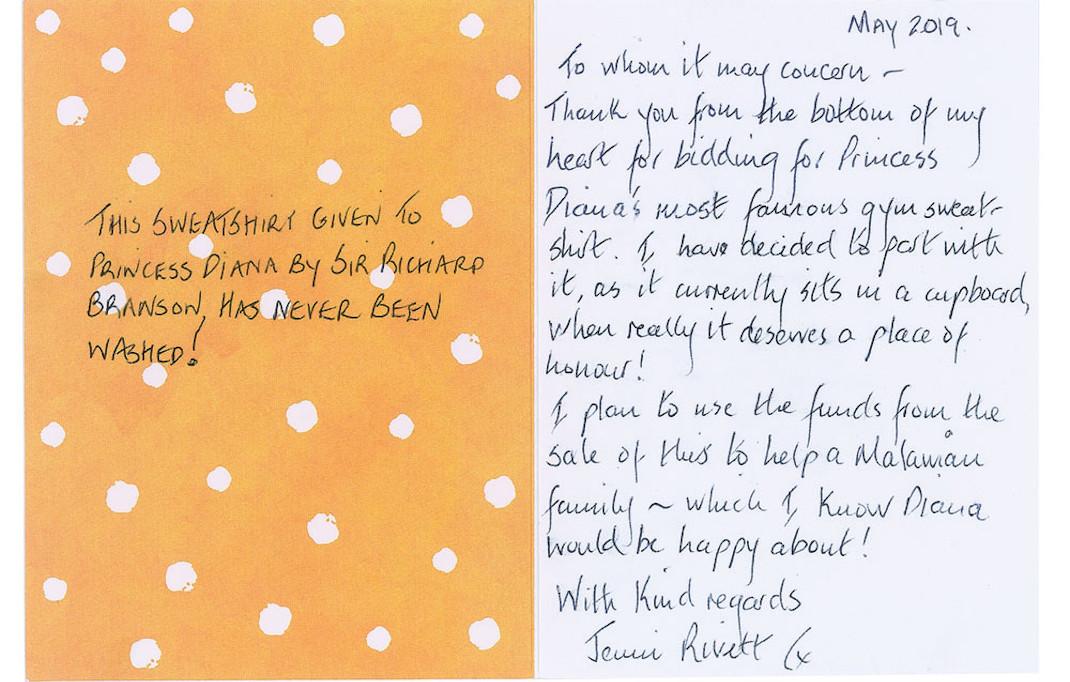 THIS SWEATSHIRT GIVEN TO
PRINCESS DIANA BY SIR RICHARD
BRANSON, HAS NEVER BEEN
WASHED!
MAY 2019.
To whom it may concern –
Thank you from the bottom of my
heart for bidding for Princess
Diana's most famous gym sweat-
shirt. I, have decided to part with
it, as it currently sits in a cupboard,
when really it deserves a place of
honour!
I plan to use the funds from the
sale of this to help a Malawian
family ~ which I, know Diana
would be happy about!
With Kind regards
Jenni Rivett x